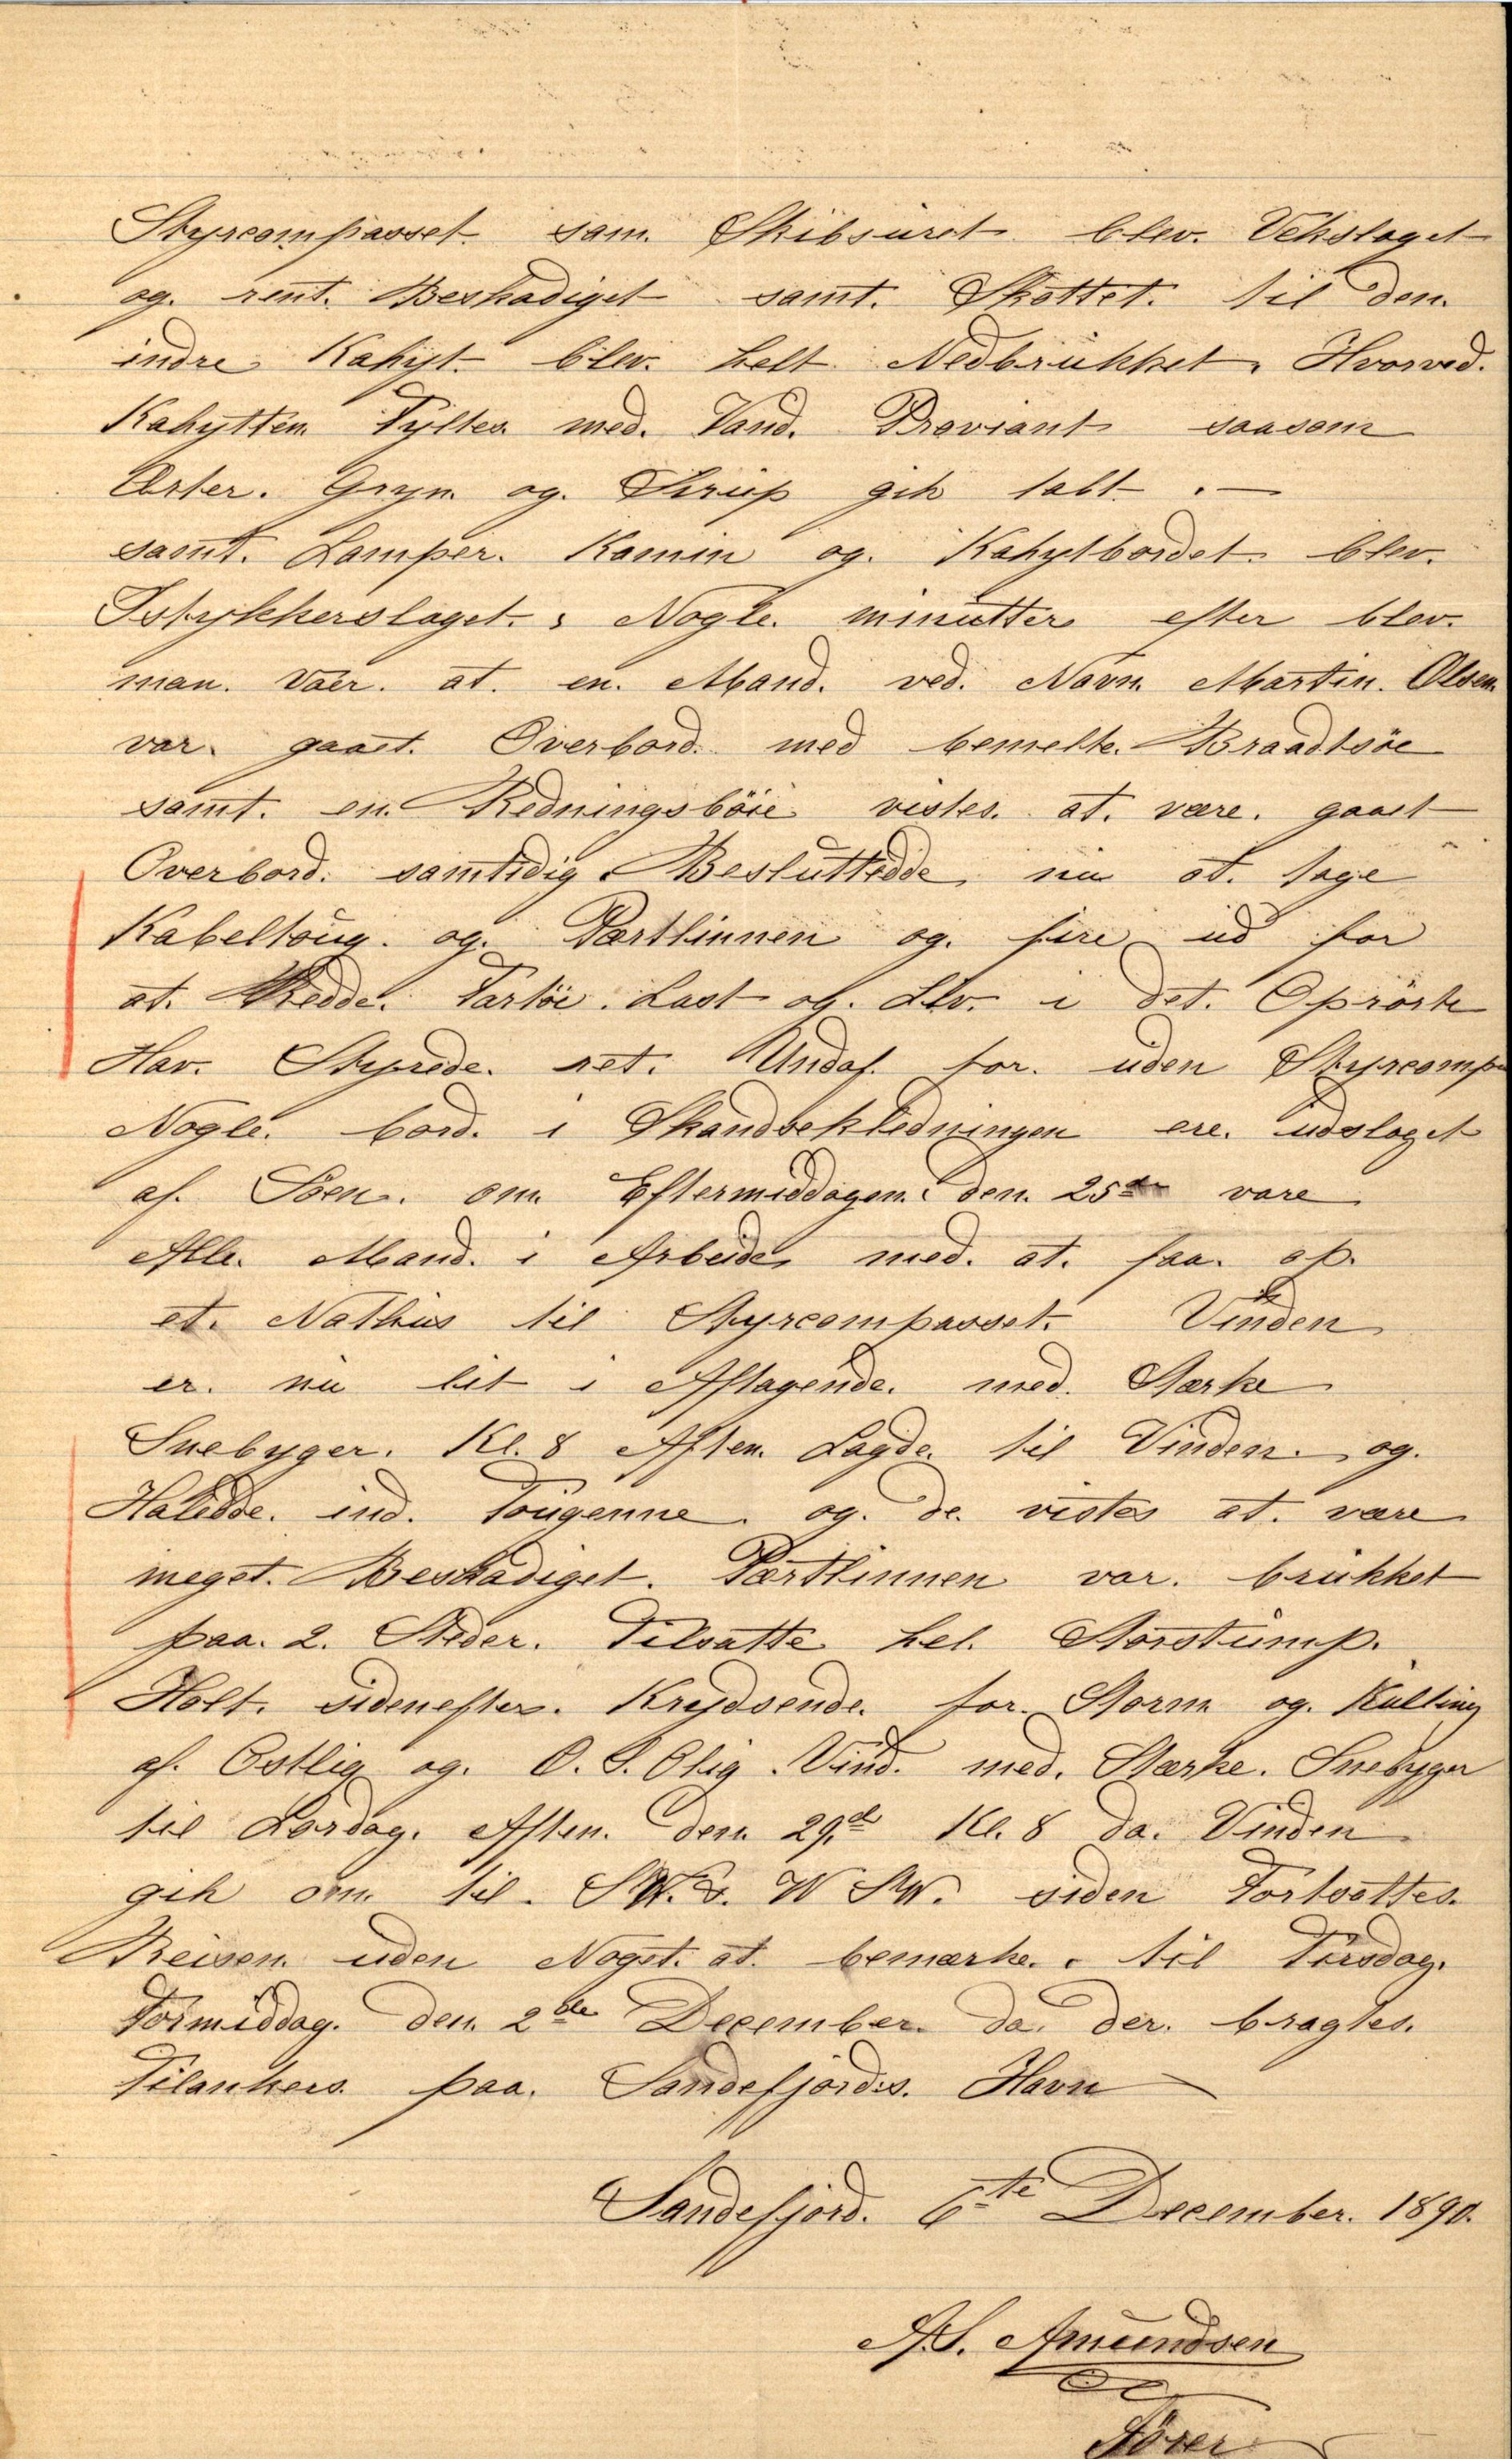 Styrcompasset. som. Skibsuret. blev. Vekslaget
og. rent. Beskadiget samt. Skottet. til den.
indre Kahyt. blev. helt Nedbrükket, Hvorved.
Kahytten Fyltes. med. Vand. Proviant saasom
Erter. Gryn. og. Sirup gik tabt. —
samt. Lamper. Kamin og. Kahytbordet. blev.
Istykkerslaget. Nogle. minutter efter blev.
man. Vaer. at. en. Mand. ved. Navn. Martin. Olsen.
var. gaaet. Overbord. med bemelte. Braadtsöe
samt. en. Redningsböie vistes. at. være. gaaet
Overbord. samtidig. Besluttedde, nu at. tage
Kabeltoug. og. Pærtlinnen og. fire ud for
at. Redde. Fartöi. Last og. Liv. i det. Oprörte
Hav. Styrede. ret. Undaf. for. uden Styrcomp
Nogle. bord. i Skandsekledningen ere. udslaget
af. Söen. om. Eftermiddagen. den. 25de vare
Alle. Mand. i Arbeide, med. at. faa. op.
et. Nathus til Styrcompasset. Vinden
er. nu lit i Aftagende. med. Stærke
Snebyger. Kl. 8 Aften. Lagde. til Vinden. og.
Haledde. ind. Tougenne. og. de. vistes at. være
meget. Beskadiget. Pærtlinnen var. brükket
paa. 2. Steder. Tilsatte hel. Storstump.
Holt. sidenefter. Krydsende. for. Storm og. Kulling
af. Ostlig og. O. S. Olig. Vind. med. Stærke. Snebyger
til Lördag. Aften. den. 29.de Kl. 8 da. Vinden
gik om. til. SW. W SW. siden Fortsattes.
Reisen. uden Noget. at. bemærke. til Tirsdag.
Formiddag. den. 2den December. da. der. bragtes.
Tilankers. paa. Sandefjords. Havn
Sandefjord. 6te December. 1890.
A.S. Amundsen
Förer